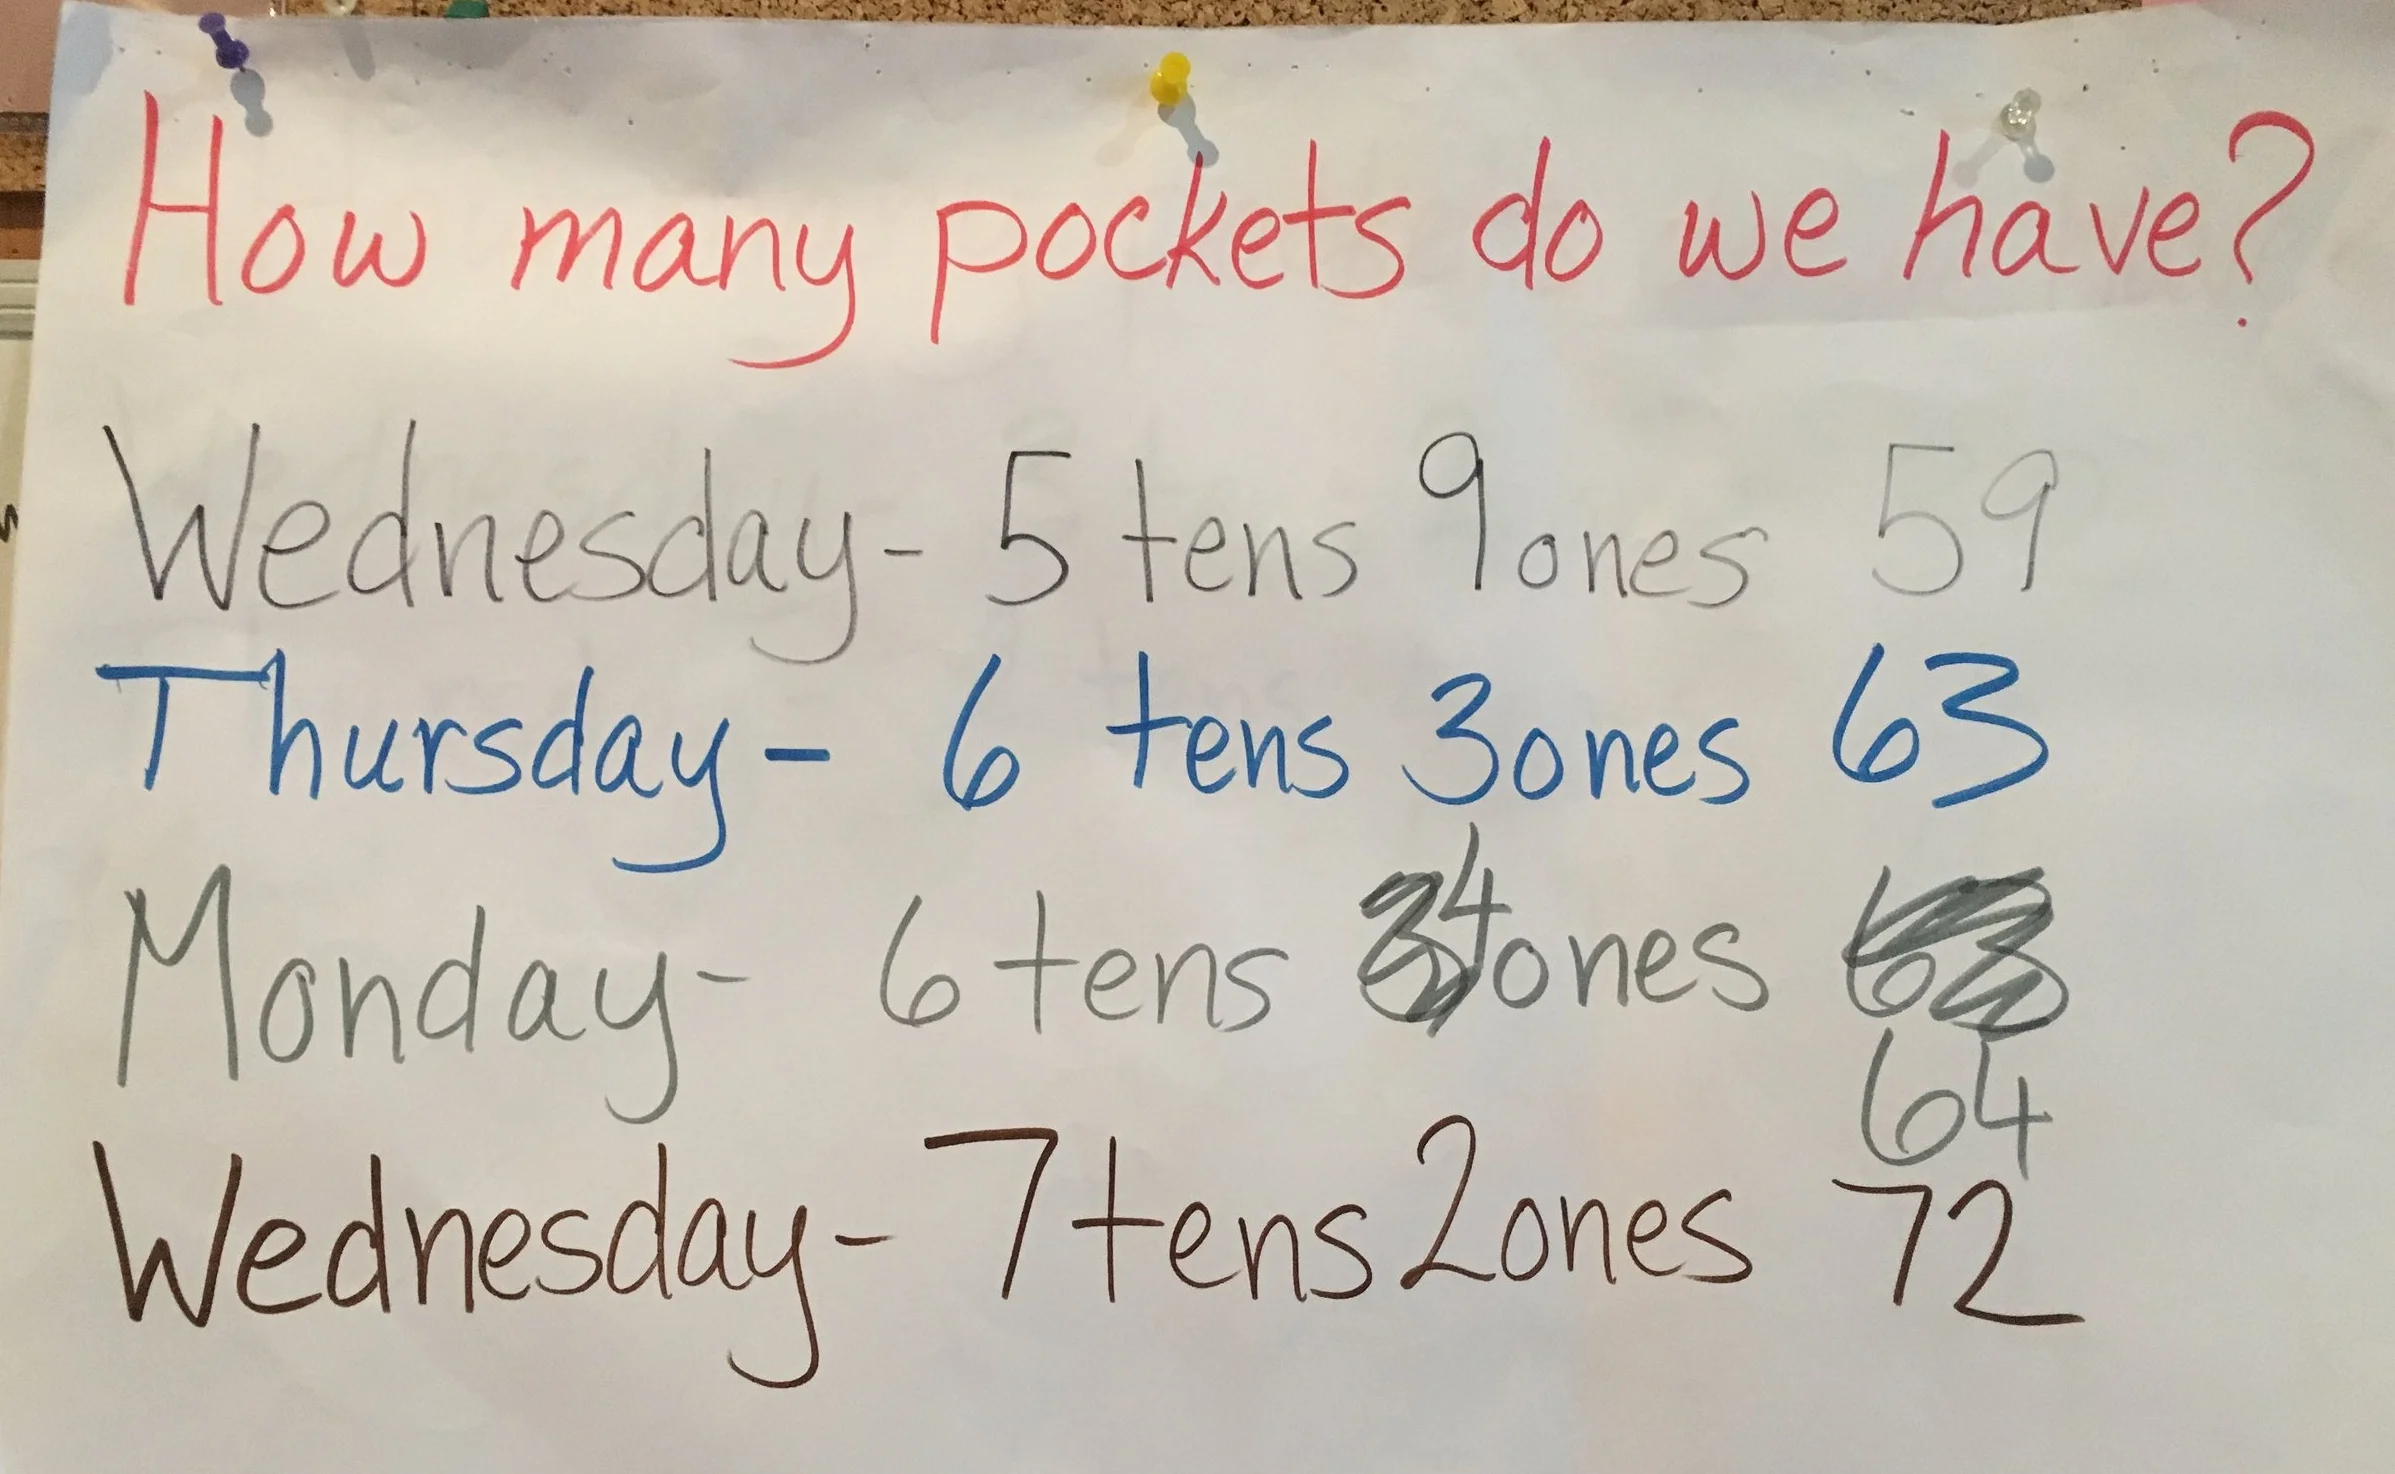 How many pockets do we have?
Wednesday- 5 tens 9 ones 59
Thursday- 6 tens 3 ones 63
Monday- 6 tens 4 ones
64
Wednesday- 7 tens 2 ones 72